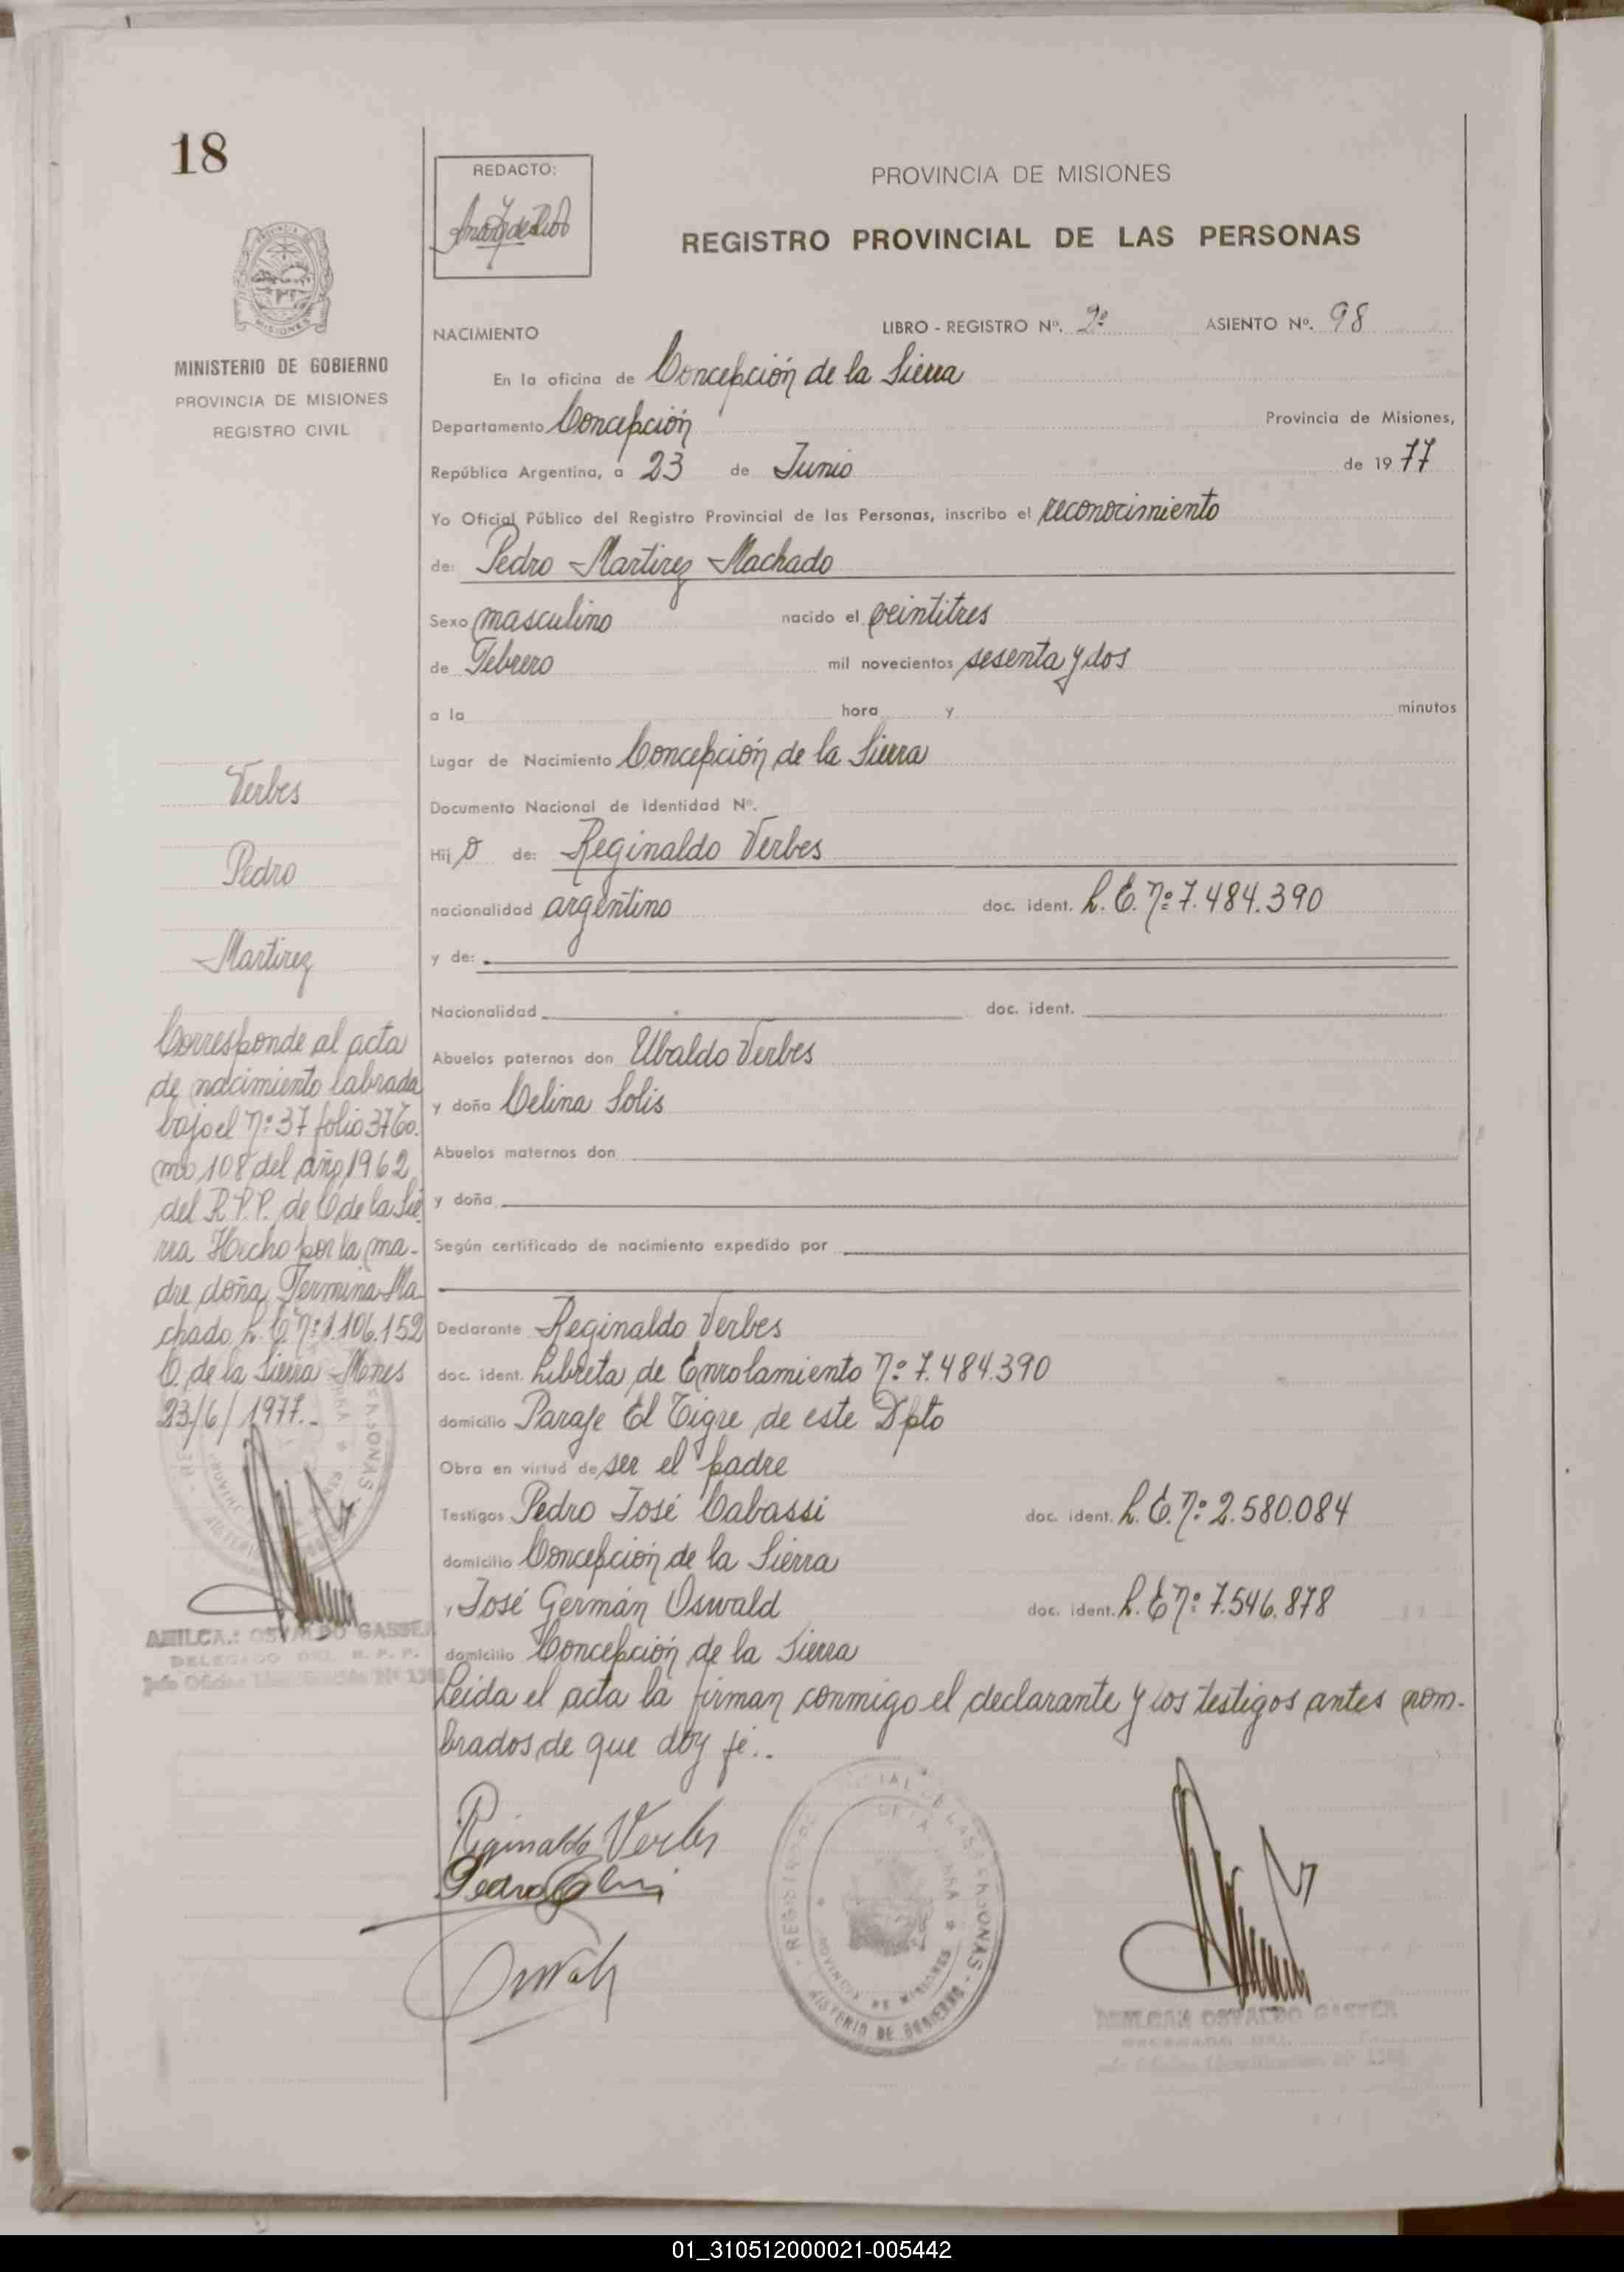 18
REDACTO:
PROVINCIA DE MISIONES
REGISTRO PROVINCIAL DE LAS PERSONAS
MISIONES
MINISTERIO DE GOBIERNO
PROVINCIA DE MISIONES
REGISTRO CIVIL
NACIMIENTO LIBRO - REGISTRO Nº. 2º ASIENTO Nº. 98
En la oficina de Concepción de la Sierra
Departamento Concepción Provincia de Misiones,
República Argentina, a 23 de Junio de 1977
Yo Oficial Público del Registro Provincial de las Personas, inscribo el reconocimiento
de: Pedro Martirez Machado
Sexo masculino nacido el veintitres
de Febrero mil novecientos sesenta y dos
a la hora y minutos
Lugar de Nacimiento Concepción de la Sierra
Documento Nacional de Identidad Nº.
Hij o de: Reginaldo Verbes
nacionalidad argentino doc. ident. L. E. nº 7.484.390
y de:
Nacionalidad doc. ident.
Abuelos paternos don Ubaldo Verbes
y doña Celina Solis
Abuelos maternos don
y doña
Según certificado de nacimiento expedido por
Declarante Reginaldo Verbes
doc. ident. Libreta de Enrolamiento nº 7.484.390
domicilio Paraje El Tigre de este Dpto
Obra en virtud de ser el padre
Testigos Pedro José Cabassi doc. ident. L. E. nº 2.580.084
domicilio Concepción de la Sierra
y José Germán Oswald doc. ident. L. E nº 7.546.878
domicilio Concepción de la Sierra
Leida el acta la firman conmigo el declarante y los testigos antes nom-
brados de que doy fé..
Verbes
Pedro
Martirez
Corresponde al acta
de nacimiento labrada
bajo el nº 37 folio 37 To.
mo 108 del año 1962
del R.P.P. de C. de la Sie
rra Hecho por la ma-
dre doña Fermina Ma
chado L. C. nº 1.106.152
C. de la Sierra Mnes
23/6/1977.-
AMILCAR OSVALDO GASSER
DELEGADO DEL R. P. P.
Reginaldo Verbes
Pedro
REGISTRO PROVINCIAL DE LAS PERSONAS - MINISTERIO DE GOBIERNO
PROVINCIA DE MISIONES
AMILCAR OSVALDO GASSER
01_310512000021-005442